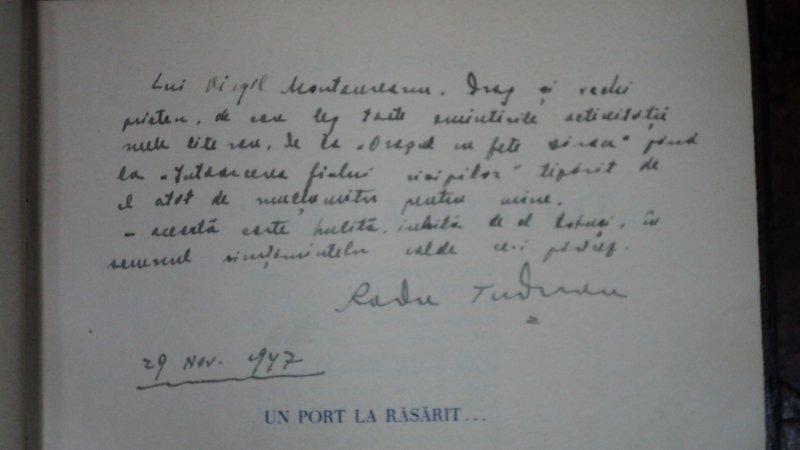 Lui Virgil Montaureanu, Drag și vechi
prieten, de care leg toate amintirile activității
mele literare, de la „Orașul cu fete sărace" până
la „Întoarcerea fiului risipitor" tipărit de
el atât de pentru mine.
– această carte iubită de el totuși, în
semnul simțămintelor calde ce-i păstrez.
Radu Tudoran
29 Nov. 1947
UN PORT LA RĂSĂRIT...